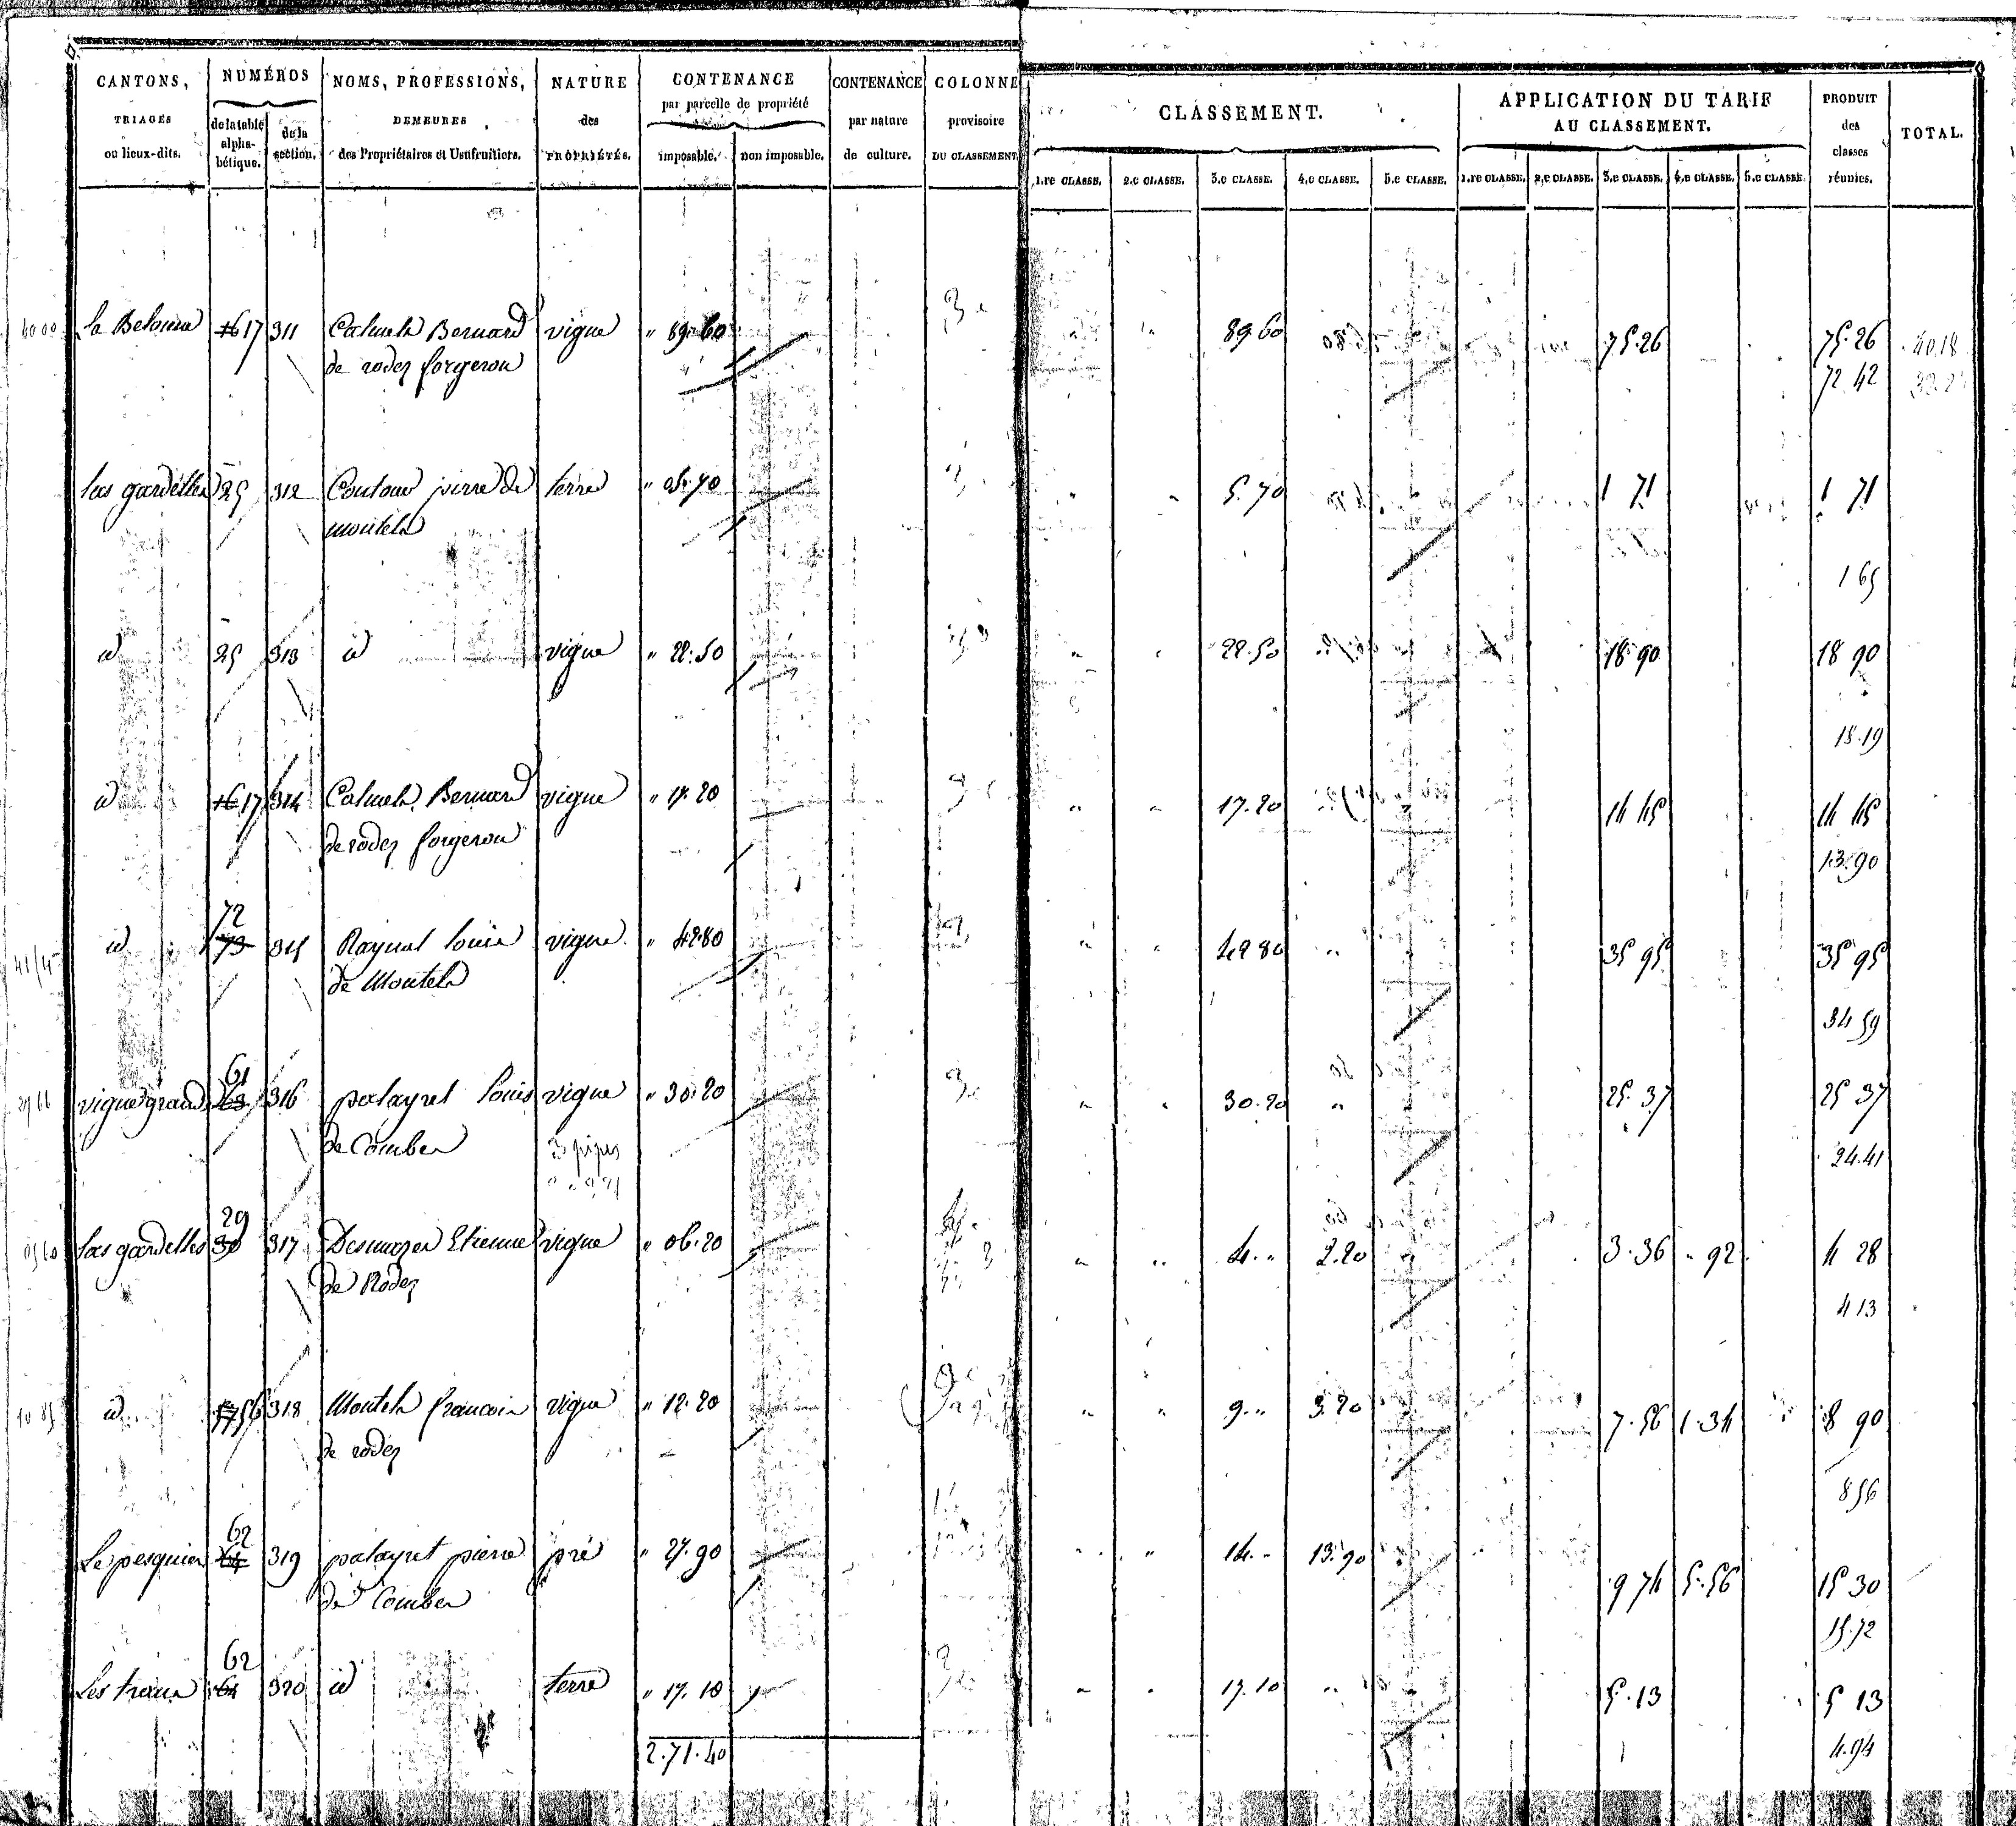 CANTONS, TRIAGES ou lieux-dits. NUMÉROS de la table alpha-bétique. de la section. NOMS, PROFESSIONS, DEMEURES des Propriétaires et Usufruitiers. NATURE des PROPRIÉTÉS. CONTENANCE par parcelle de propriété imposable. non imposable. CONTENANCE par nature de culture. COLONNE provisoire DU CLASSEMENT
CLASSEMENT. 1.re CLASSE. 2.e CLASSE. 3.e CLASSE. 4.e CLASSE. 5.e CLASSE. APPLICATION DU TARIF AU CLASSEMENT. 1.re CLASSE. 2.e CLASSE. 3.e CLASSE. 4.e CLASSE. 5.e CLASSE. PRODUIT des classes réunies. TOTAL.
16 17 311 Bernard vigne " 89.60 89.60 75.26 75.26
de rodez forgeron 72 42
las gardelles 25 312 pierre de terre " 05.70 5.70 1 71 1 71
1 65
id 25 313 id vigne " 22.50 22.50 18.90 18 90
18.19
id 16 17 314 Bernard vigne " 17.20 17.20 14 45 14 45
de rodez forgeron 13.90
72
id 73 315 Raynal louis vigne " 42.80 42 80 35 95 35 95
de Montels
34 59
61
vigne grand 63 316 palayret louis vigne " 30.20 30.20 25.37 25 37
de Combes 3 pipes 24.41
29
las gardelles 30 317 Etienne vigne " 06.20 4. " 2.20 3.36 " 92 4 28
de Rodez 4 13
id 56 318 Montels francois vigne " 12.20 9. " 3.20 7.56 1.34 8 90
de rodez
8 56
62
Le pesquier 64 319 palayret pierre pré " 27.90 14. " 13.90 9 74 5.56 15 30
de Combes
15.72
62
Les 64 320 id terre " 17.10 17.10 5.13 5 13
2.71.40 4.94